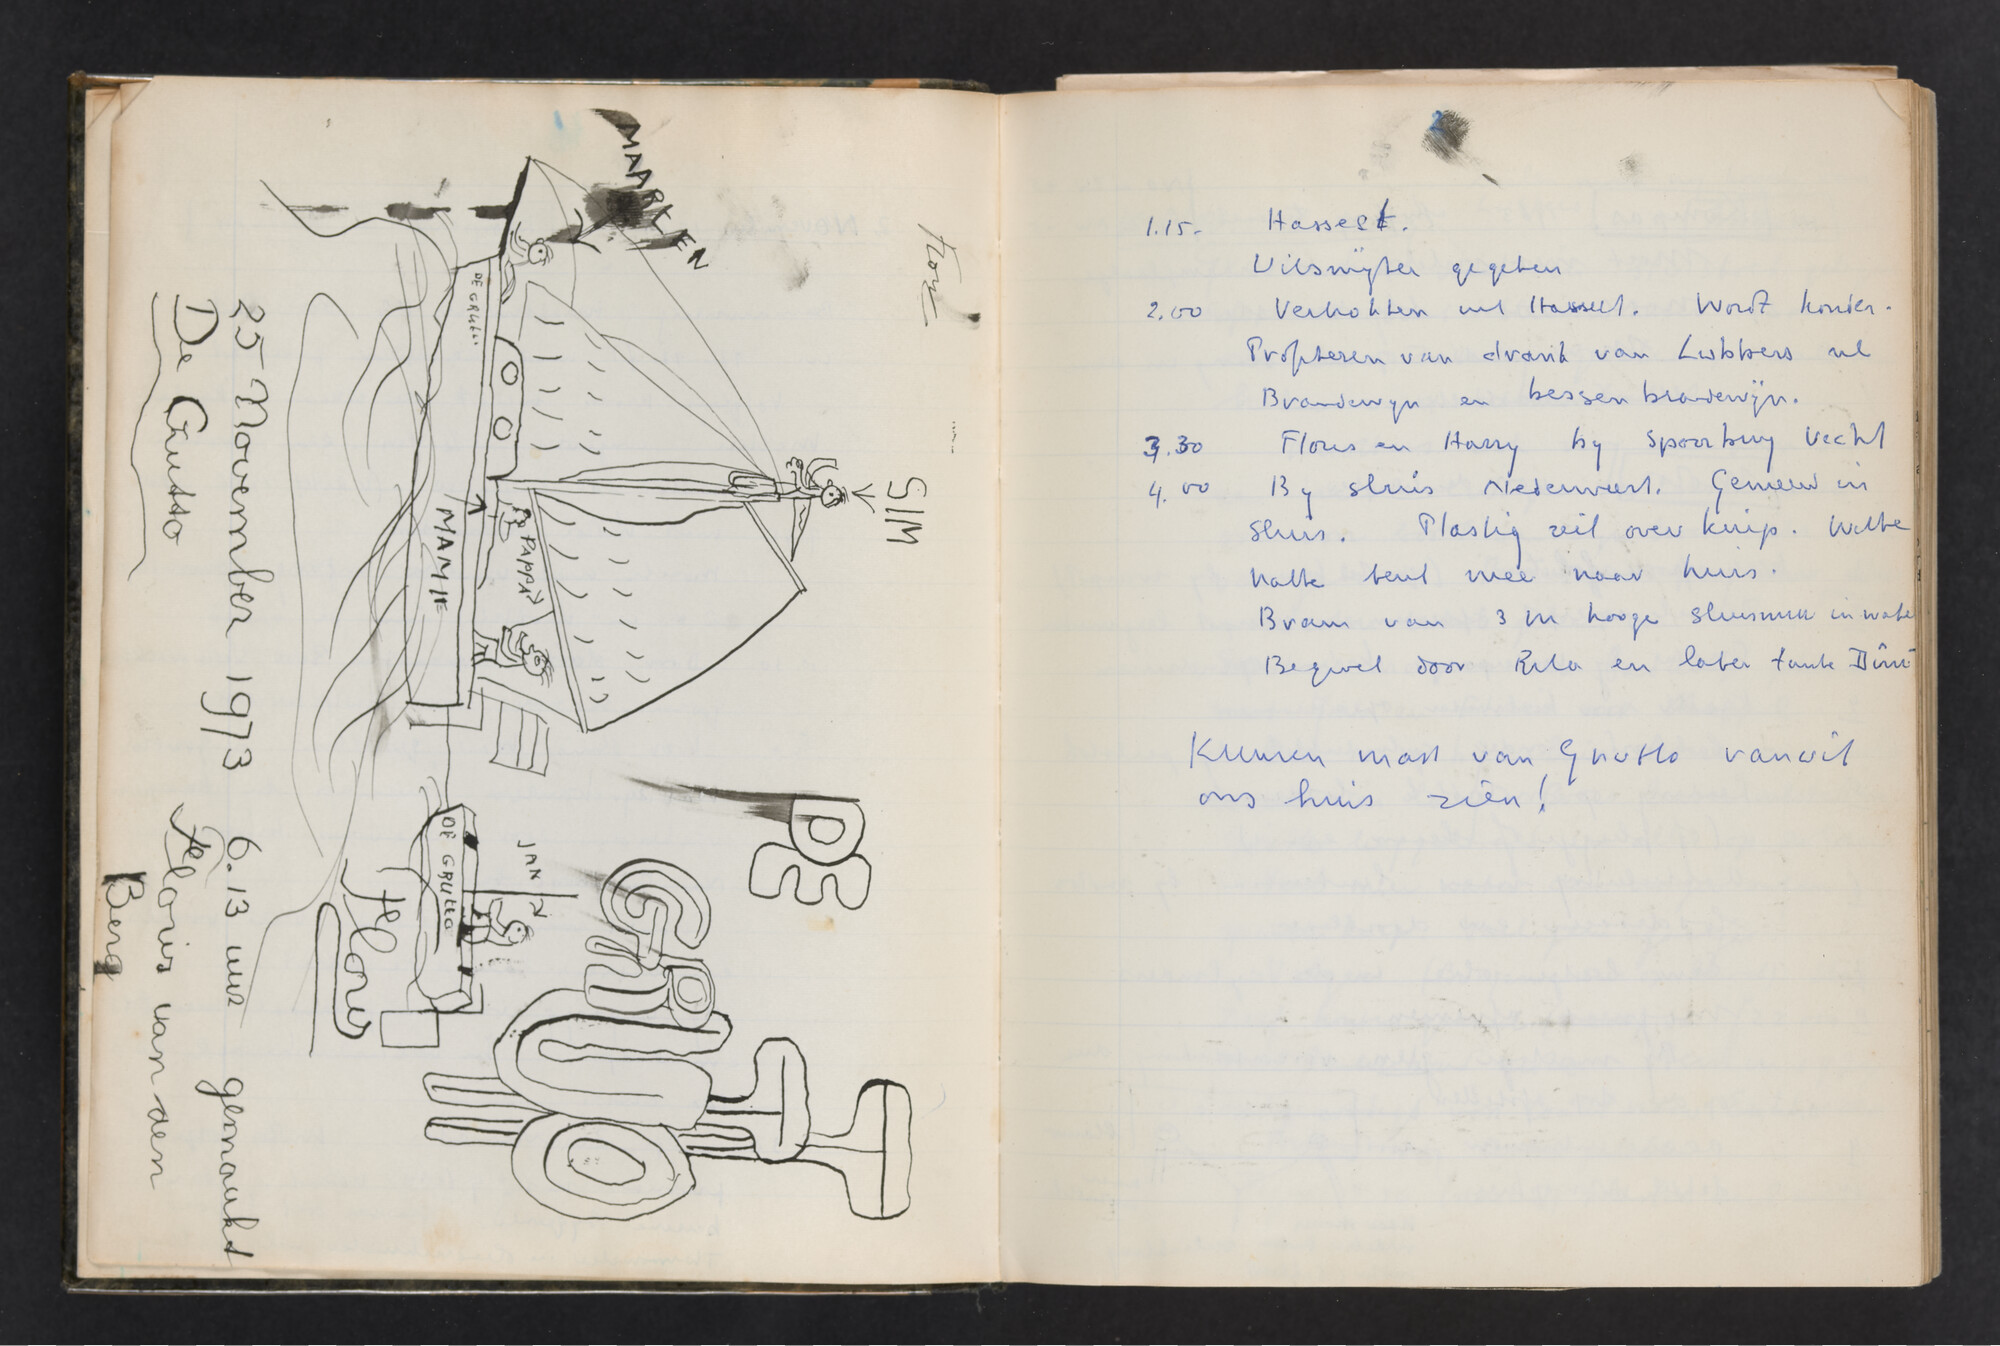 MAARTEN
SIM
DE GRUTTO
MAMIE
PAPPA
DE GRUTTO
JAN
Floris
DE
GRUTTO
25 November 1973 6.13 uur gemaakt
De Grutto Floris van den
Berg
2
1.15. Hasselt.
Uitsmijter gegeten
2.00 Vertrokken uit Hasselt. Wordt kouder.
Profiteren van drank van Lubbers nl
Brandewijn en bessenbrandewijn.
3.30 Floris en Harry by Spoorbrug Vecht
4.00 By sluis Nederweert. Gemeerd in
sluis. Plastig zeil over kuip. Witte
natte beul mee naar huis.
Bram van 3 m hooge sluismuur in water
Begroet door Rita en later tante
Kunnen mast van Grutto vanuit
ons huis zien!